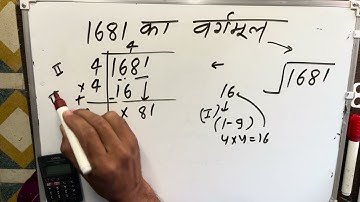 1681 का वर्गमूल
4
II 4 1681
× 4 16↓
+ × 81
√1681
16
(I) (1-9)
4×4=16